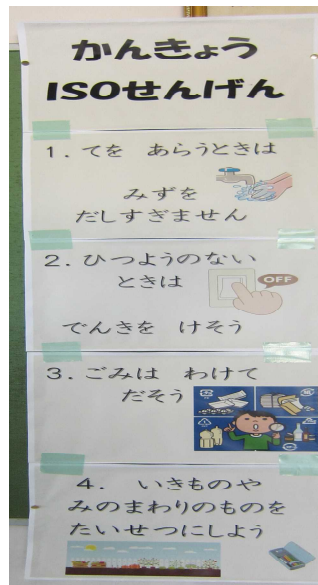 かんきょう
ISOせんげん
1．てを　あらうときは
みずを
だしすぎません
2．ひつようのない
ときは
OFF
でんきを　けそう
3．ごみは　わけて
だそう
4．　いきものや
みのまわりのものを
たいせつにしよう